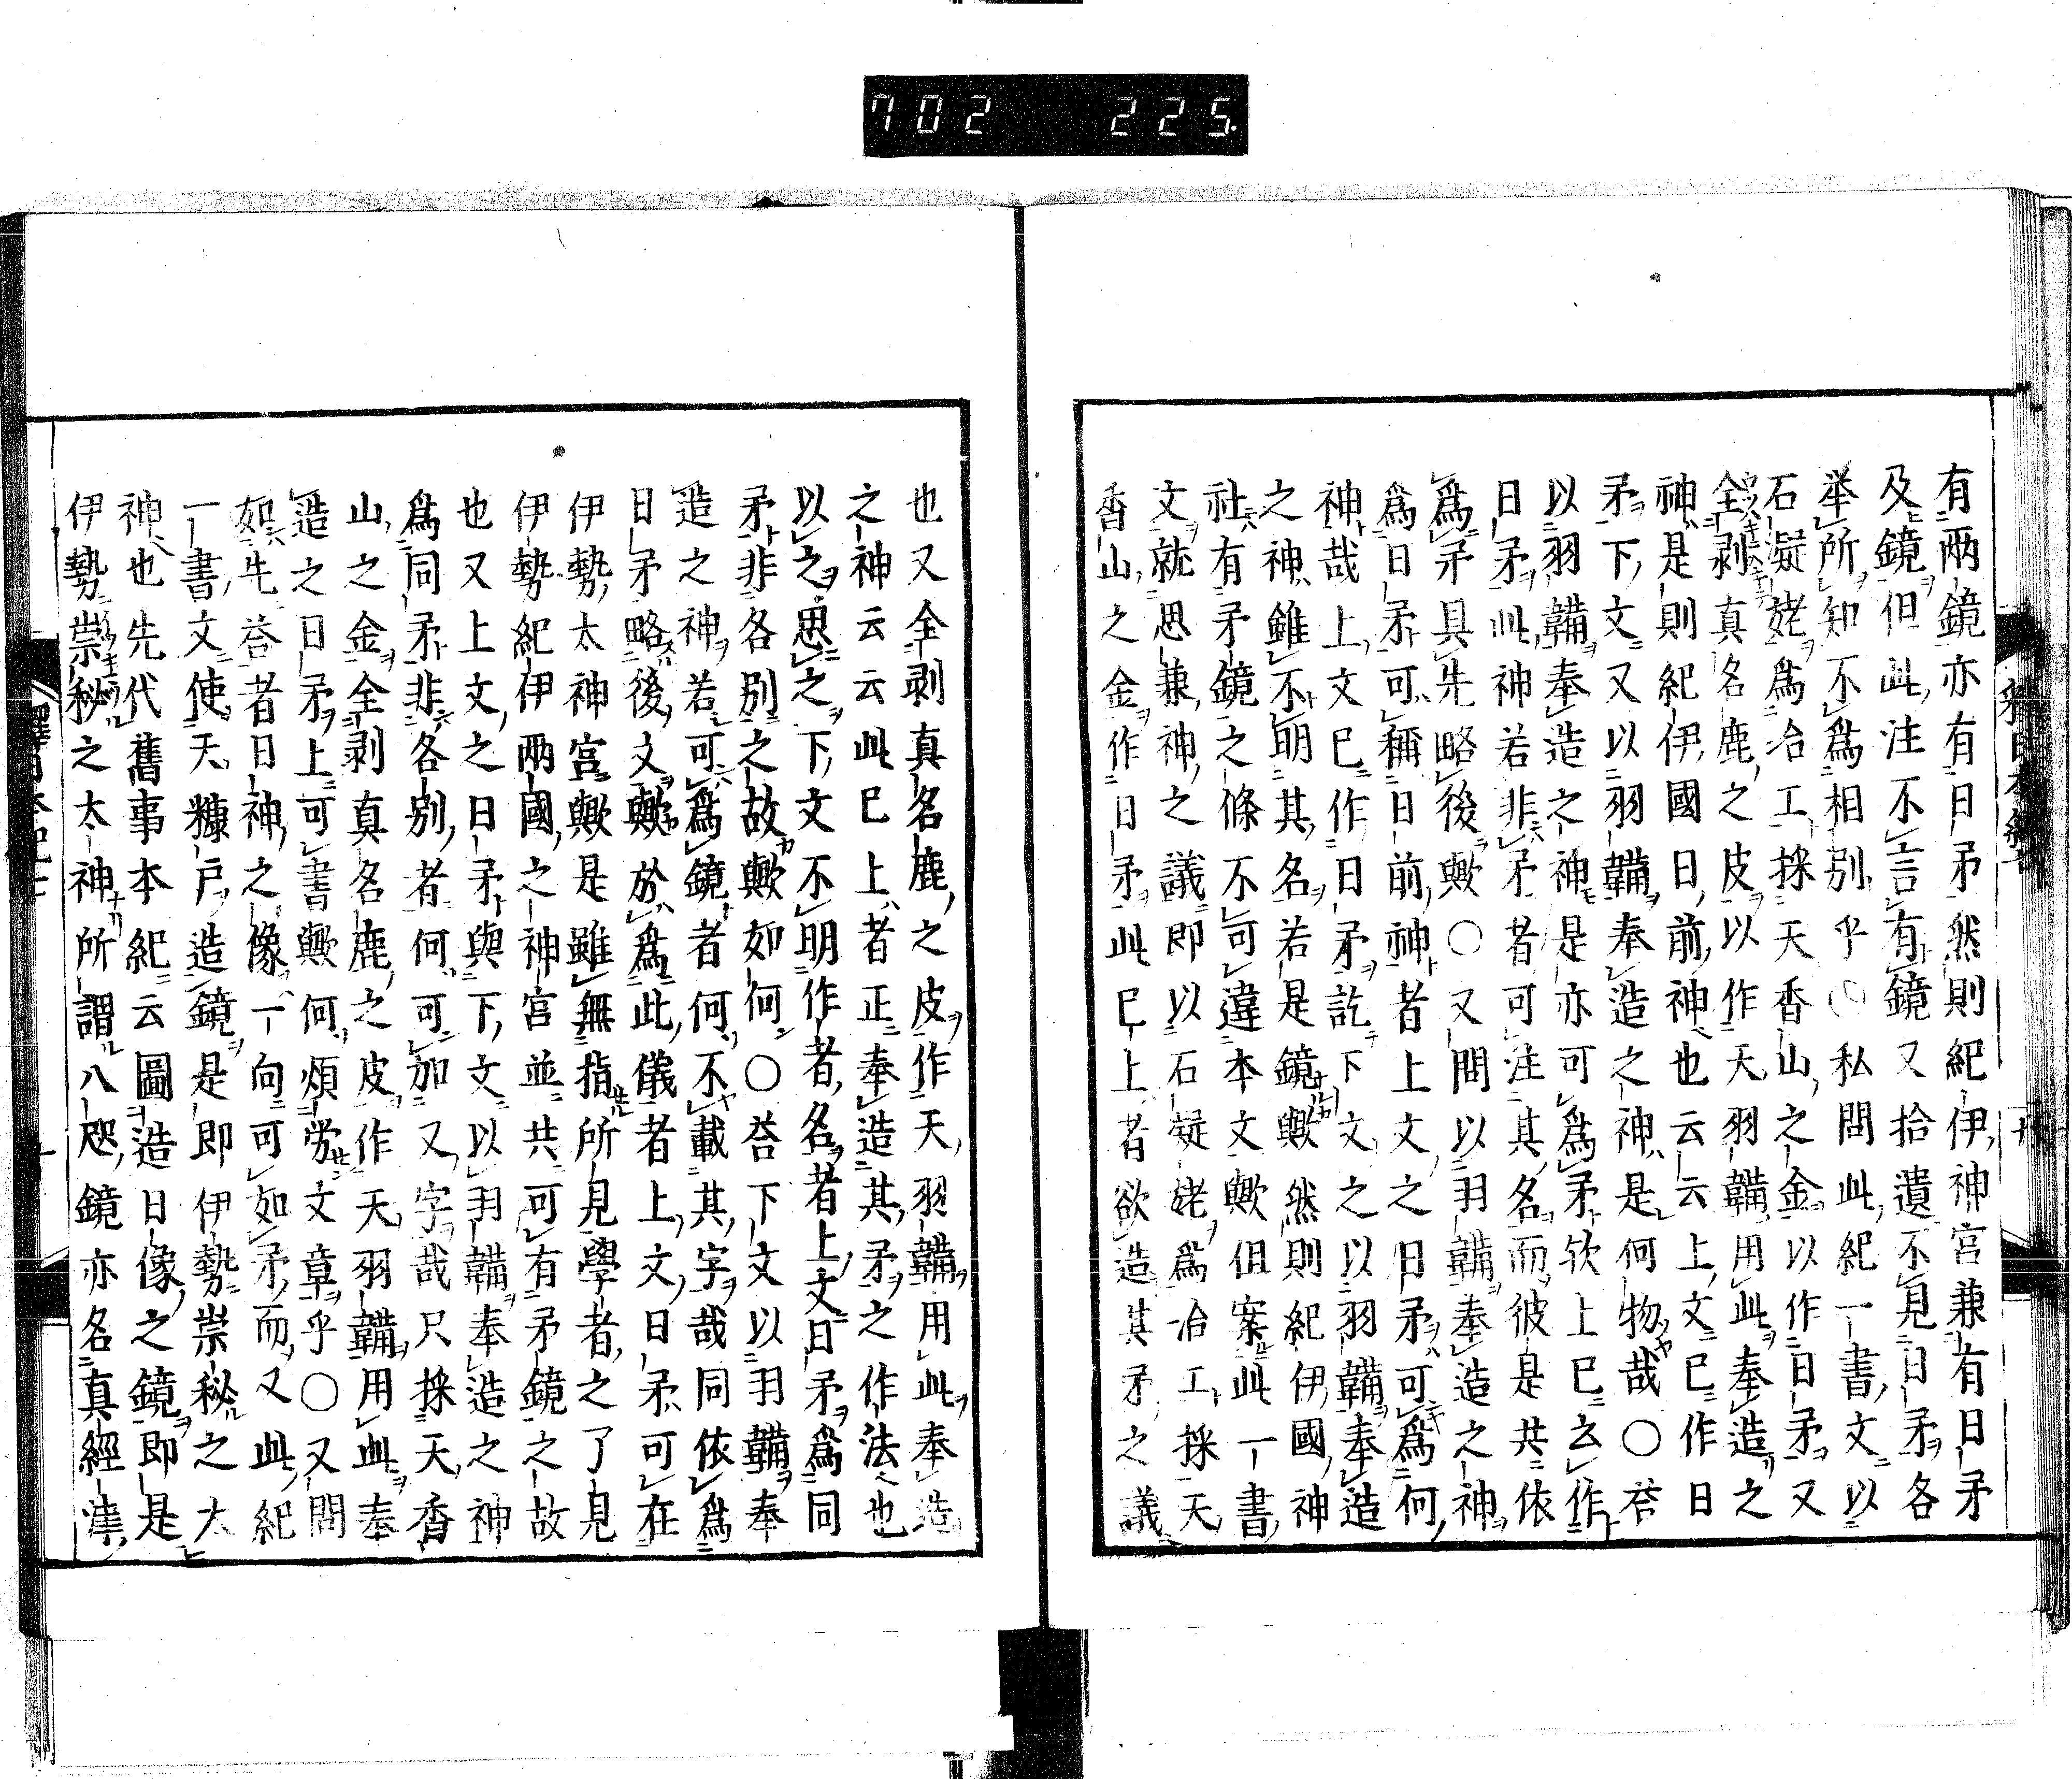 702 225.
有兩鏡亦有日矛然則紀伊神宮兼有日矛
及鏡但此注不言有鏡又拾遺不見日矛各
举所知不爲相別乎○私問此紀一書文以
石凝姥爲冶工採天香山之金以作日矛又
全剥真名鹿之皮以作天羽鞴用此奉造之
神是則紀伊國日前神也云云上文已作日
矛下文又以羽鞴奉造之神是何物哉○荅
以羽鞴奉造之神是亦可爲矛欤上已云作
日矛此神若非矛者可注其名而彼是共依
爲矛具先略後歟○又問以羽鞴奉造之神
爲日矛可稱日前神者上文之日矛可爲何
神哉上文已作日矛訖下文之以羽鞴奉造
之神雖不明其名若是鏡歟然則紀伊國神
社有矛鏡之條不可違本文歟但案此一書
文就思兼神之議即以石凝姥爲冶工採天
香山之金作日矛此已上者欲造其矛之議
也又全剥真名鹿之皮作天羽鞴用此奉造
之神云云此已上者正奉造其矛之作法也
以之思之下文不明作者名者上文日矛爲同
矛非各別之故歟如何○荅下文以羽鞴奉
造之神若可爲鏡者何不載其字哉同依爲
日矛略後文歟於爲此儀者上文日矛可在
伊勢太神宮歟是雖無指所見學者之了見
伊勢紀伊兩國之神宮並共可有矛鏡之故
也又上文之日矛與下文以羽鞴奉造之神
爲同矛非各別者何可加又字哉只採天香
山之金全剥真名鹿之皮作天羽鞴用此奉
造之日矛上可書歟何煩労文章乎○又問
如先荅者日神之像一向可如矛而又此紀
一書文使天糠戸造鏡是即伊勢崇秘之大
神也先代舊事本紀云圖造日像之鏡即是
伊勢崇秘之太神所謂八咫鏡亦名真經津